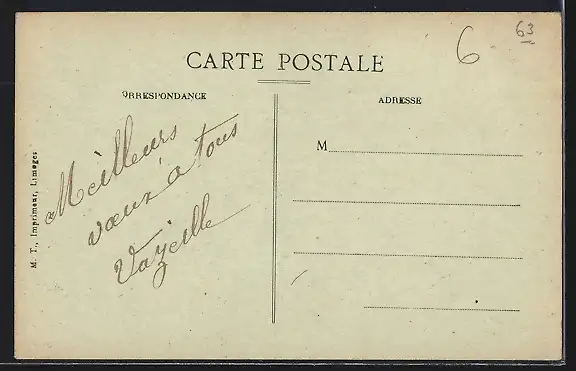 6
63
CARTE POSTALE
ORRESPONDANCE
ADRESSE
Meilleurs
vœux à tous
Vazeille
M
M. T., Imprimeur, Limoges